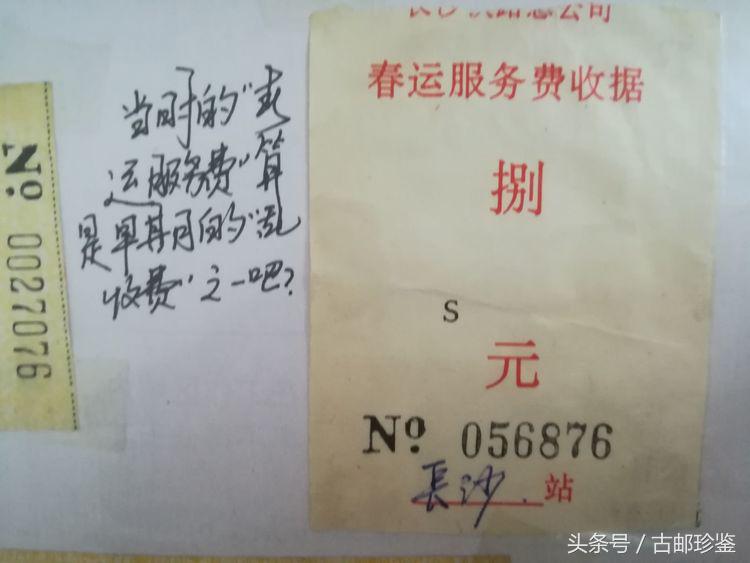 当时的"春
运服务费"算
是早期的"乱
收费"之一吧?
No: 0027076
长沙铁路总公司
春运服务费收据
捌
S
元
No. 056876
長沙.站
头条号/古邮珍鉴